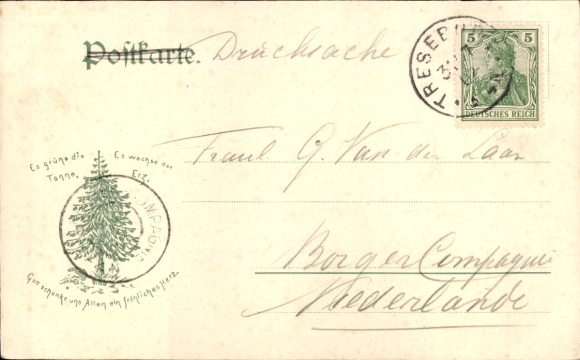 Postkarte. Drucksache
TRESEBURG
5 5
DEUTSCHES REICH
Es grüne die Es wachse das
Tanne, Erz,
Gott schenke uns Allen ein fröhliches Herz
Fraul. G. Van der Laan
Borgercompagnie
Niederlande